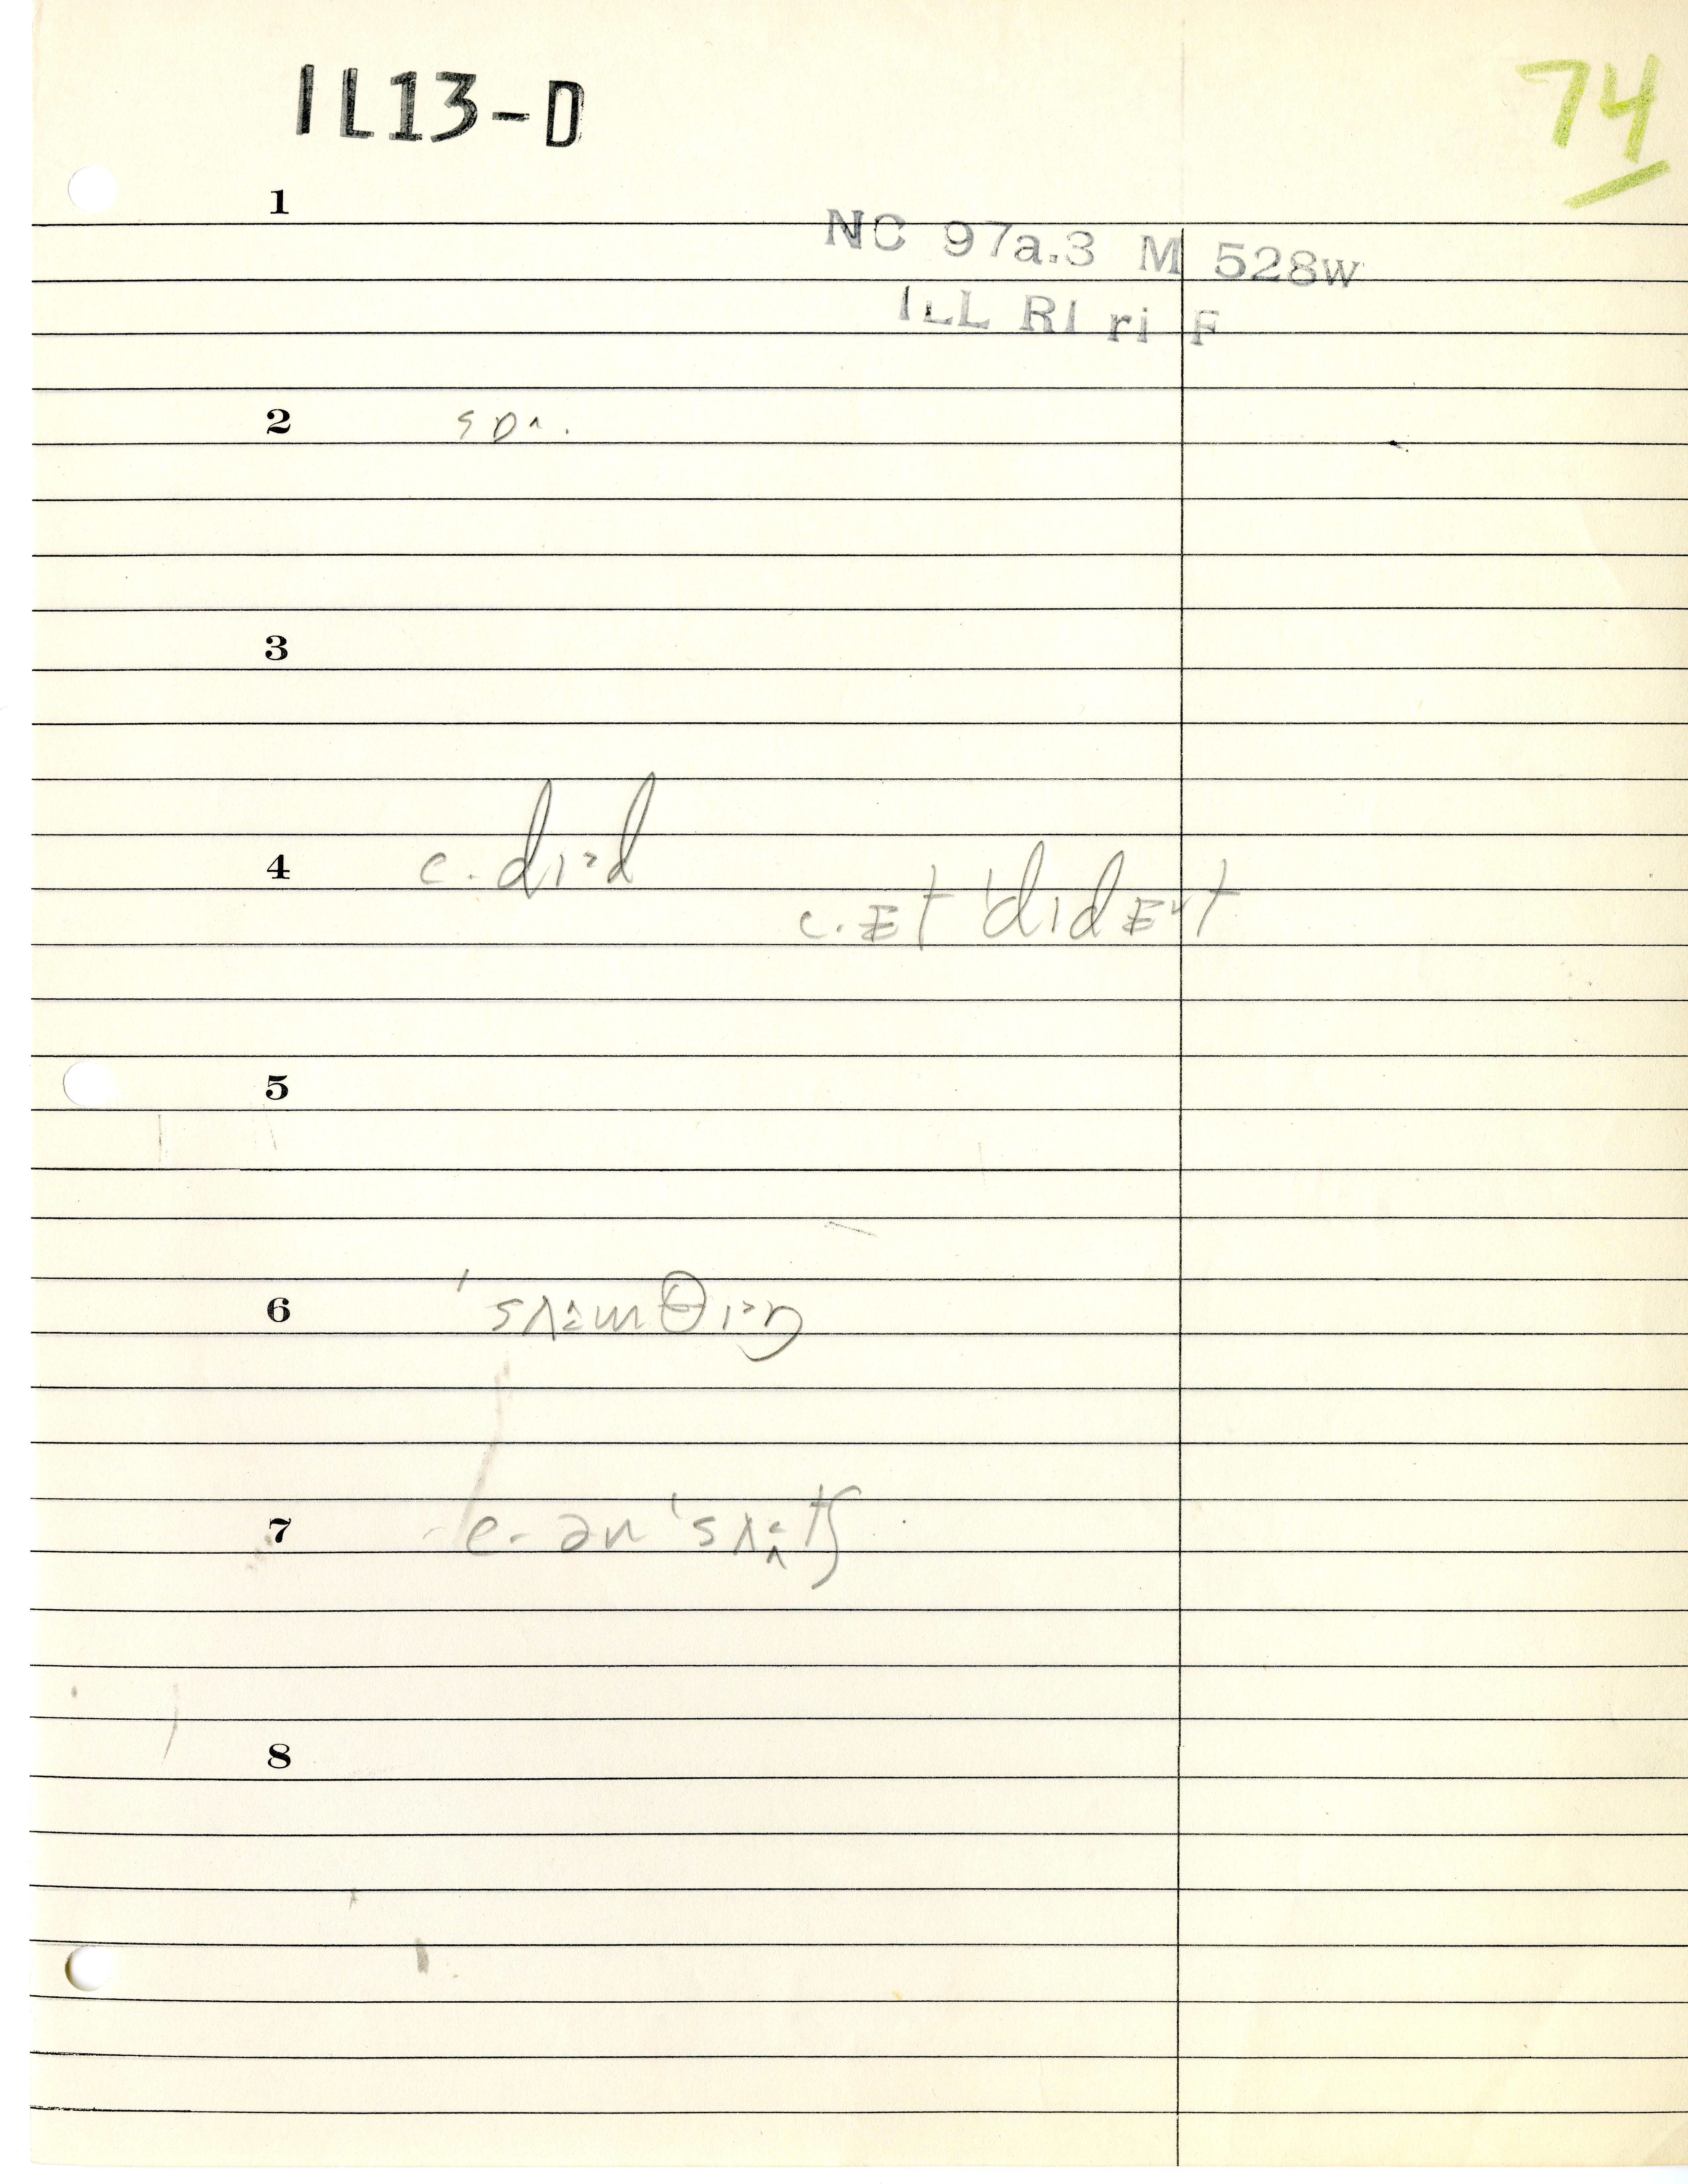 IL13-D
74
1
NC 97a.3 M 528w
ILL RI ri F
2
3
4 c. dɪᵊd
c. ɛt 'dɪdɛᵛt
5
6 'sʌ˄mθɪᵊŋ
7 c. ən 'sʌ˄tʃ
8